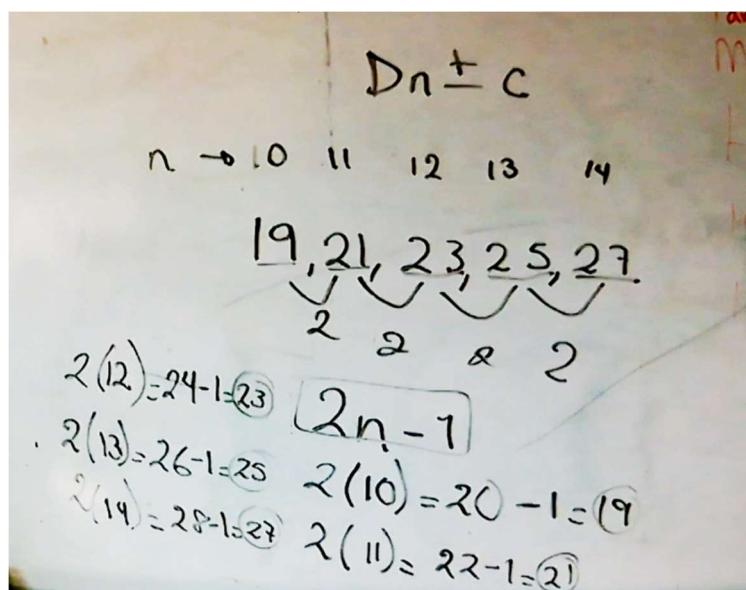 Dn ± c
n → 10 11 12 13 14
19, 21, 23, 25, 27
2 2 2 2
2(12)=24-1=23
2n-1
2(13)=26-1=25
2(10)=20-1=19
2(14)=28-1=27
2(11)=22-1=21